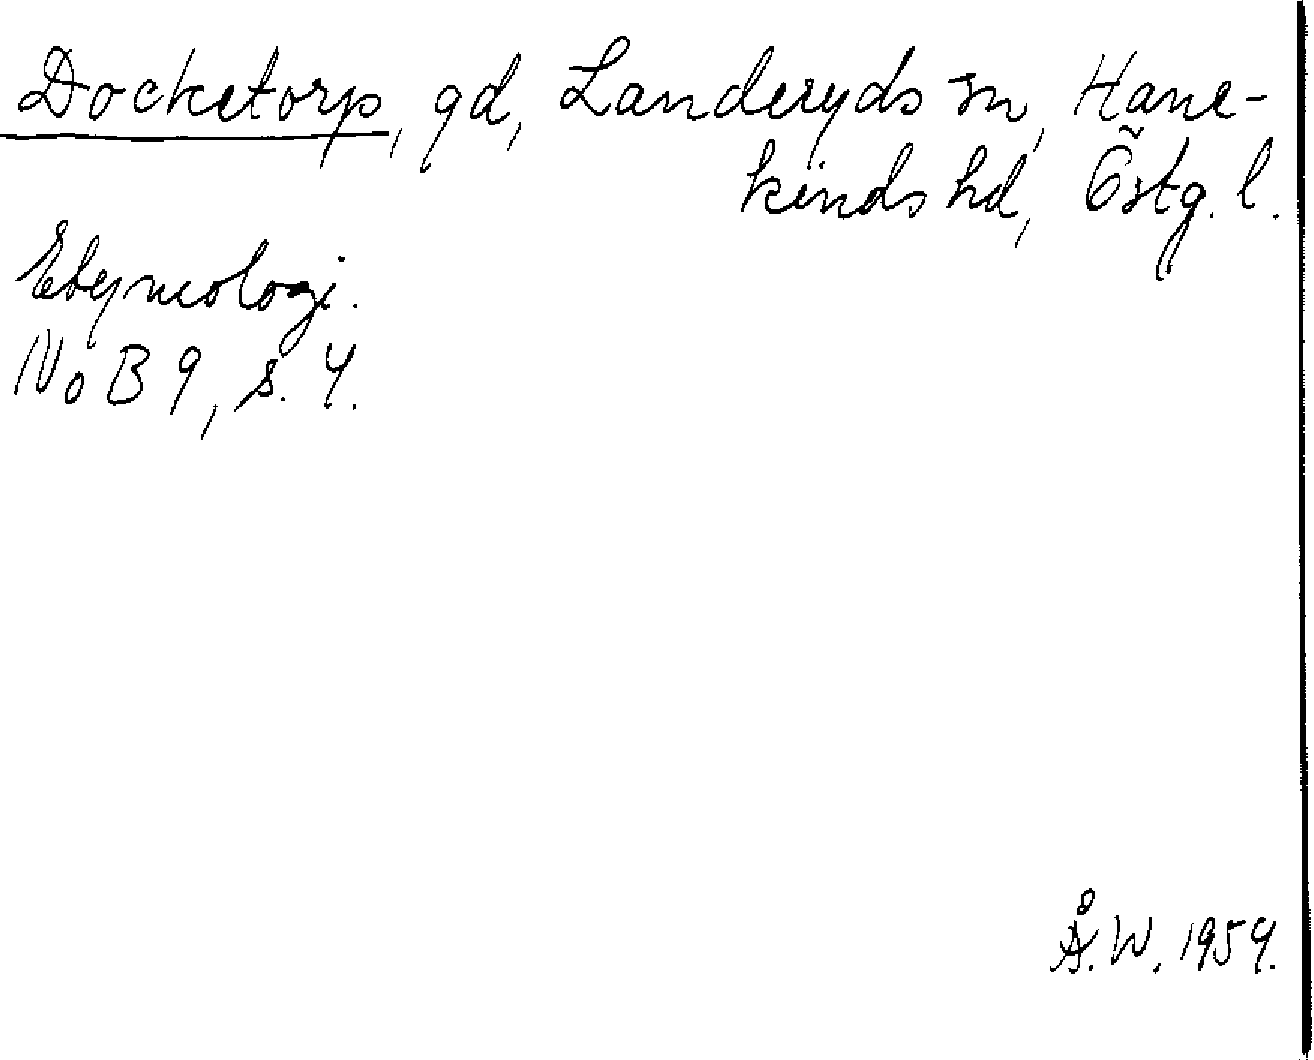 Docketorp, gd, Landeryds sn, Hane-
kinds hd, Östg. l.
Etymologi.
NoB 9, s. 4.
Å. W. 1954.